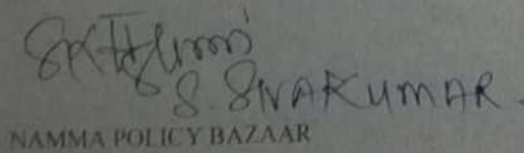 S. SIVAKUMAR
NAMMA POLICY BAZAAR